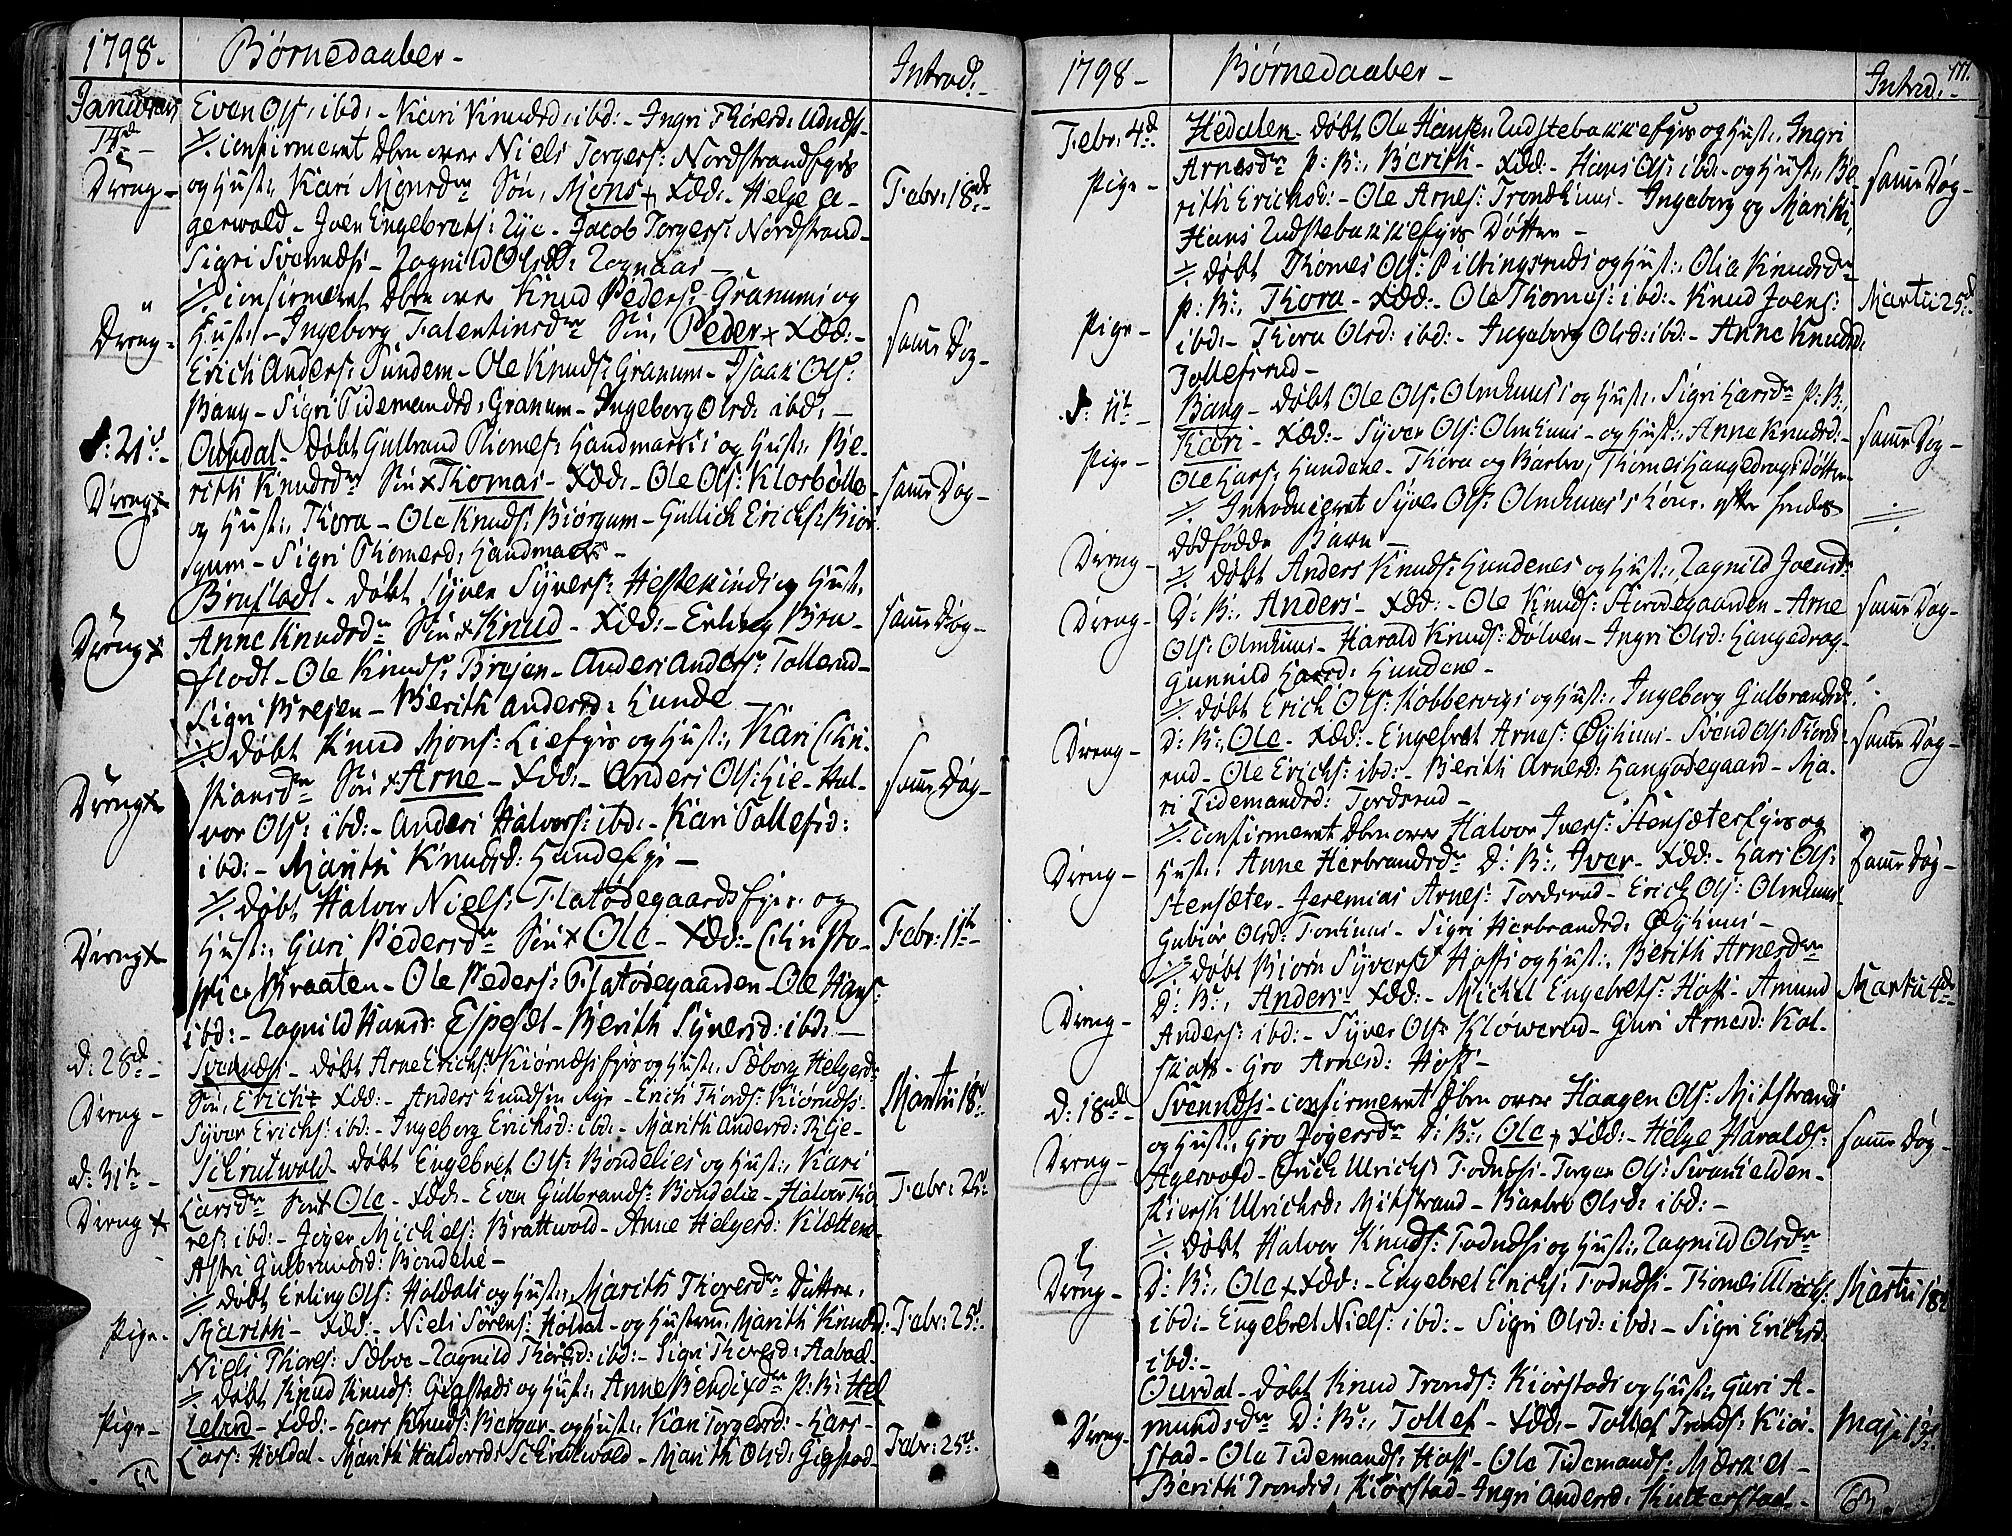 1798.
Børnedaaber -
Introd:
Januarii
14d
Dreng -
Even Ols: ibd: - Kari Knudsd: ibd: - Ingri Thoresd: Udnæs -
confirmeret Dben over Niels Torgers: Nordstrandseyes
og Hust: Kari Monsdr Søn, Mons + Fdd: - Helge A-
gerwold - Joen Engebrets: Rye - Jacob Torgers: Nordstrand -
Sigri Svennæs - Ragnild Olsd: Rognaas -
Febr: 18de -
Dreng -
confirmeret Dben over Knud Peders: Granums og
Hust: - Ingeborg Falentinsdr Søn, Peder + Fdd: -
Erich Anders: Sundem - Ole Knuds: Granum - Isaak Ols:
Bang - Sigri Tidemandsd: Granum - Ingeborg Olsd: ibd: -
samme Dag -
d: 21d -
Dreng +
Ourdal - døbt Gulbrand Thomes: Handmarks og Hust: Be-
rith Knudsdr Søn + Thomas - Fdd: - Ole Ols: Klosbølle -
og Hust: Thora - Ole Knuds: Biørgum - Gullich Erichs: Biør-
gum - Sigri Thomesd: Handmark -
samme Dag -
Dreng +
Bruflodt - døbt Syver Syvers: Hestekinds og Hust:
Anne Knudsdr Søn + Knud - Fdd: - Erling Bru-
flodt - Ole Knuds: Brejen - Anders Anders: Tollerud -
Sigri Brejen - Berith Andersd: Lunde -
samme Dag -
Dreng +
døbt Knud Mons: Lieseyes og Hust: Kari Chri-
stiansdr Søn + Arne - Fdd: - Anders Ols: Lie - Hal-
vor Ols: ibd: - Anders Halvors: ibd: - Kari Tollefsd:
ibd: - Marith Knudsd: Lundeseye -
samme Dag -
Dreng +
døbt Halvor Niels: Flatødegaardseyer og
Hust: Guri Pedersdr Søn + Ole - Fdd: - Christo-
pher Braaten - Ole Peders: Flatødegaarden - Ole Hans:
ibd: - Ragnild Hansd: Espeset - Berith Syversd: ibd: -
Febr: 11te -
d: 28d -
Dreng -
Svennæs - døbt Arne Erichs: Kiørnæseyes og Hust: Sæborg Helgesdr
Søn, Erich + Fdd: - Anders Knudsen Rye - Erich Thords: Kiørnæs -
Syver Erichs: ibd: - Ingeborg Erichsd: ibd: - Marith Andersd: Rye -
Martii 18d -
d: 31te -
Dreng +
Schrutwold - døbt Engebret Ols: Bondelies og Hust: Kari
Larsdr Søn + Ole - Fdd: - Even Gulbrands: Bondelie - Halvor Tho-
res: ibd: - Joger Michels: Brattwold - Anne Helgesd: Klætten -
Astri Gulbrandsd: Bondelie -
Febr: 25d
Pige -
døbt Erling Ols: Holdals og Hust: Marith Thoresdr Datter,
Marith - Fdd: - Niels Sørens: Holdal - og Hustrue Marith Knudsd:
Niels Thores: Sæboe - Ragnild Thoresd: ibd: - Sigri Thoresd: Aabøl -
Febr: 25d -
Pige -
døbt Knud Knuds: Gigstads og Hust: Anne Bendixdr P: B: Hel-
lebrd - Fdd: - Lars Knuds: Berger - og Hust: Kari Torgersd: - Lars
Lars: Holdal - Marith Haldorsd: Schrutwold - Marith Olsd: Gigstad -
Febr: 25d -
1798 -
Børnedaaber -
Introd: -
177.
Febr: 4d
Pige -
Hedalen - døbt Ole Hansen Rudstebakkeeyes og Hust: Ingri
Arnesdr P: B:, Berith - Fdd: - Hans Ols: ibd: - og Hust: Be-
rith Erichsd: - Ole Arnes: Trondhuus - Ingeborg og Marith,
Hans Rudstebakkeeyes Døttre -
samme Dag -
Pige -
døbt Thomes Ols: Piltingsruds og Hust: Olia Knudsdr
P: B:, Thora - Fdd: - Ole Thomes: ibd: - Knud Joens:
ibd: - Thora Olsd: ibd: - Ingeborg Olsd: ibd: - Anne Knudsd:
Tollefsrud -
Martii 25d -
d: 11te -
Pige -
Bang - døbt Ole Ols: Olmhuus og Hust: Sigri Larsdr P: B:,
Kari - Fdd: - Syver Ols: Olmhuus - og Hust: Anne Knudsd: -
Ole Lars: Hundene - Thora og Barbro, Thomes Langedrags Døttre -
samme Dag -
Introduceret Syver Ols: Olmhuus's Kone, efter hendes
dødfødde Barn -
Dreng -
Dreng -
døbt Anders Knuds: Hundenes og Hust: Ragnild Joensdr
D: B:, Anders - Fdd: - Ole Knuds: Storødegaarden - Arne
Ols: Olmhuus - Harald Knuds: Dølven - Ingri Olsd: Langedrag -
Gunnild Larsd: Hundene -
samme Dag -
Dreng -
døbt Erich Ols: Kobbervigs og Hust: Ingeborg Gulbrandsdr
D: B:, Ole - Fdd: - Engebret Arnes: Øyhuus - Svend Ols: Thords-
rud - Ole Erichs: ibd: - Berith Arnesd: Langødegaard - Ma-
ri Tidemandsd: Tordsrud -
samme Dag -
Dreng -
confirmeret Dben over Halvor Ivers: Stensætereyes og
Hust: Anne Herbrandsdr D: B:, Iver - Fdd: - Lars Ols:
Stensæter - Jeremias Arnes: Tordsrud - Erich Ols: Olmhuus -
Gubiør Olsd: Tonhuus - Sigri Herbrandsd: Øyhuus -
samme Dag -
Dreng -
døbt Biørn Syvers: Hoffs og Hust: Berith Arnesdr
D: B:, Anders - Fdd: - Michel Engebrets: Hoff - Amund
Anders: ibd: - Syver Ols: Kløwerud - Guri Arnesd: Kal-
skoff - Gro Arnesd: Hoff -
Martii 4de
d: 18de
Dreng -
Svennæs - confirmeret Dben over Haagen Ols: Mitstrands
og Hust: Gro Jøgersdr D: B:, Ole + Fdd: - Helge Haralds:
Agerwold - Erich Ulrichs: Fodnæs - Torger Ols: Svanhelden -
Kiersti Ulrichsd: Mitstrand - Barbro Olsd: ibd: -
samme Dag -
Dreng -
døbt Halvor Knuds: Fodnæs og Hust: Ragnild Olsdr
D: B:, Ole + Fdd: - Engebret Erichs: Fodnæs - Thomes Ulrichs:
ibd: - Engebret Niels: ibd: - Sigri Olsd: ibd: - Sigri Erichsd:
ibd: -
Martii 18d
Dreng -
Ourdal - døbt Knud Tronds: Kiørstads og Hust: Guri A-
mundsdr D: B:, Tollef - Fdd: - Tollef Tronds: Kiør-
stad - Ole Tidemands: Hoff - Ole Tidemands: Mærket -
Berith Trondsd: Kiørstad - Ingri Andersd: Kutterstad -
Maji 13d